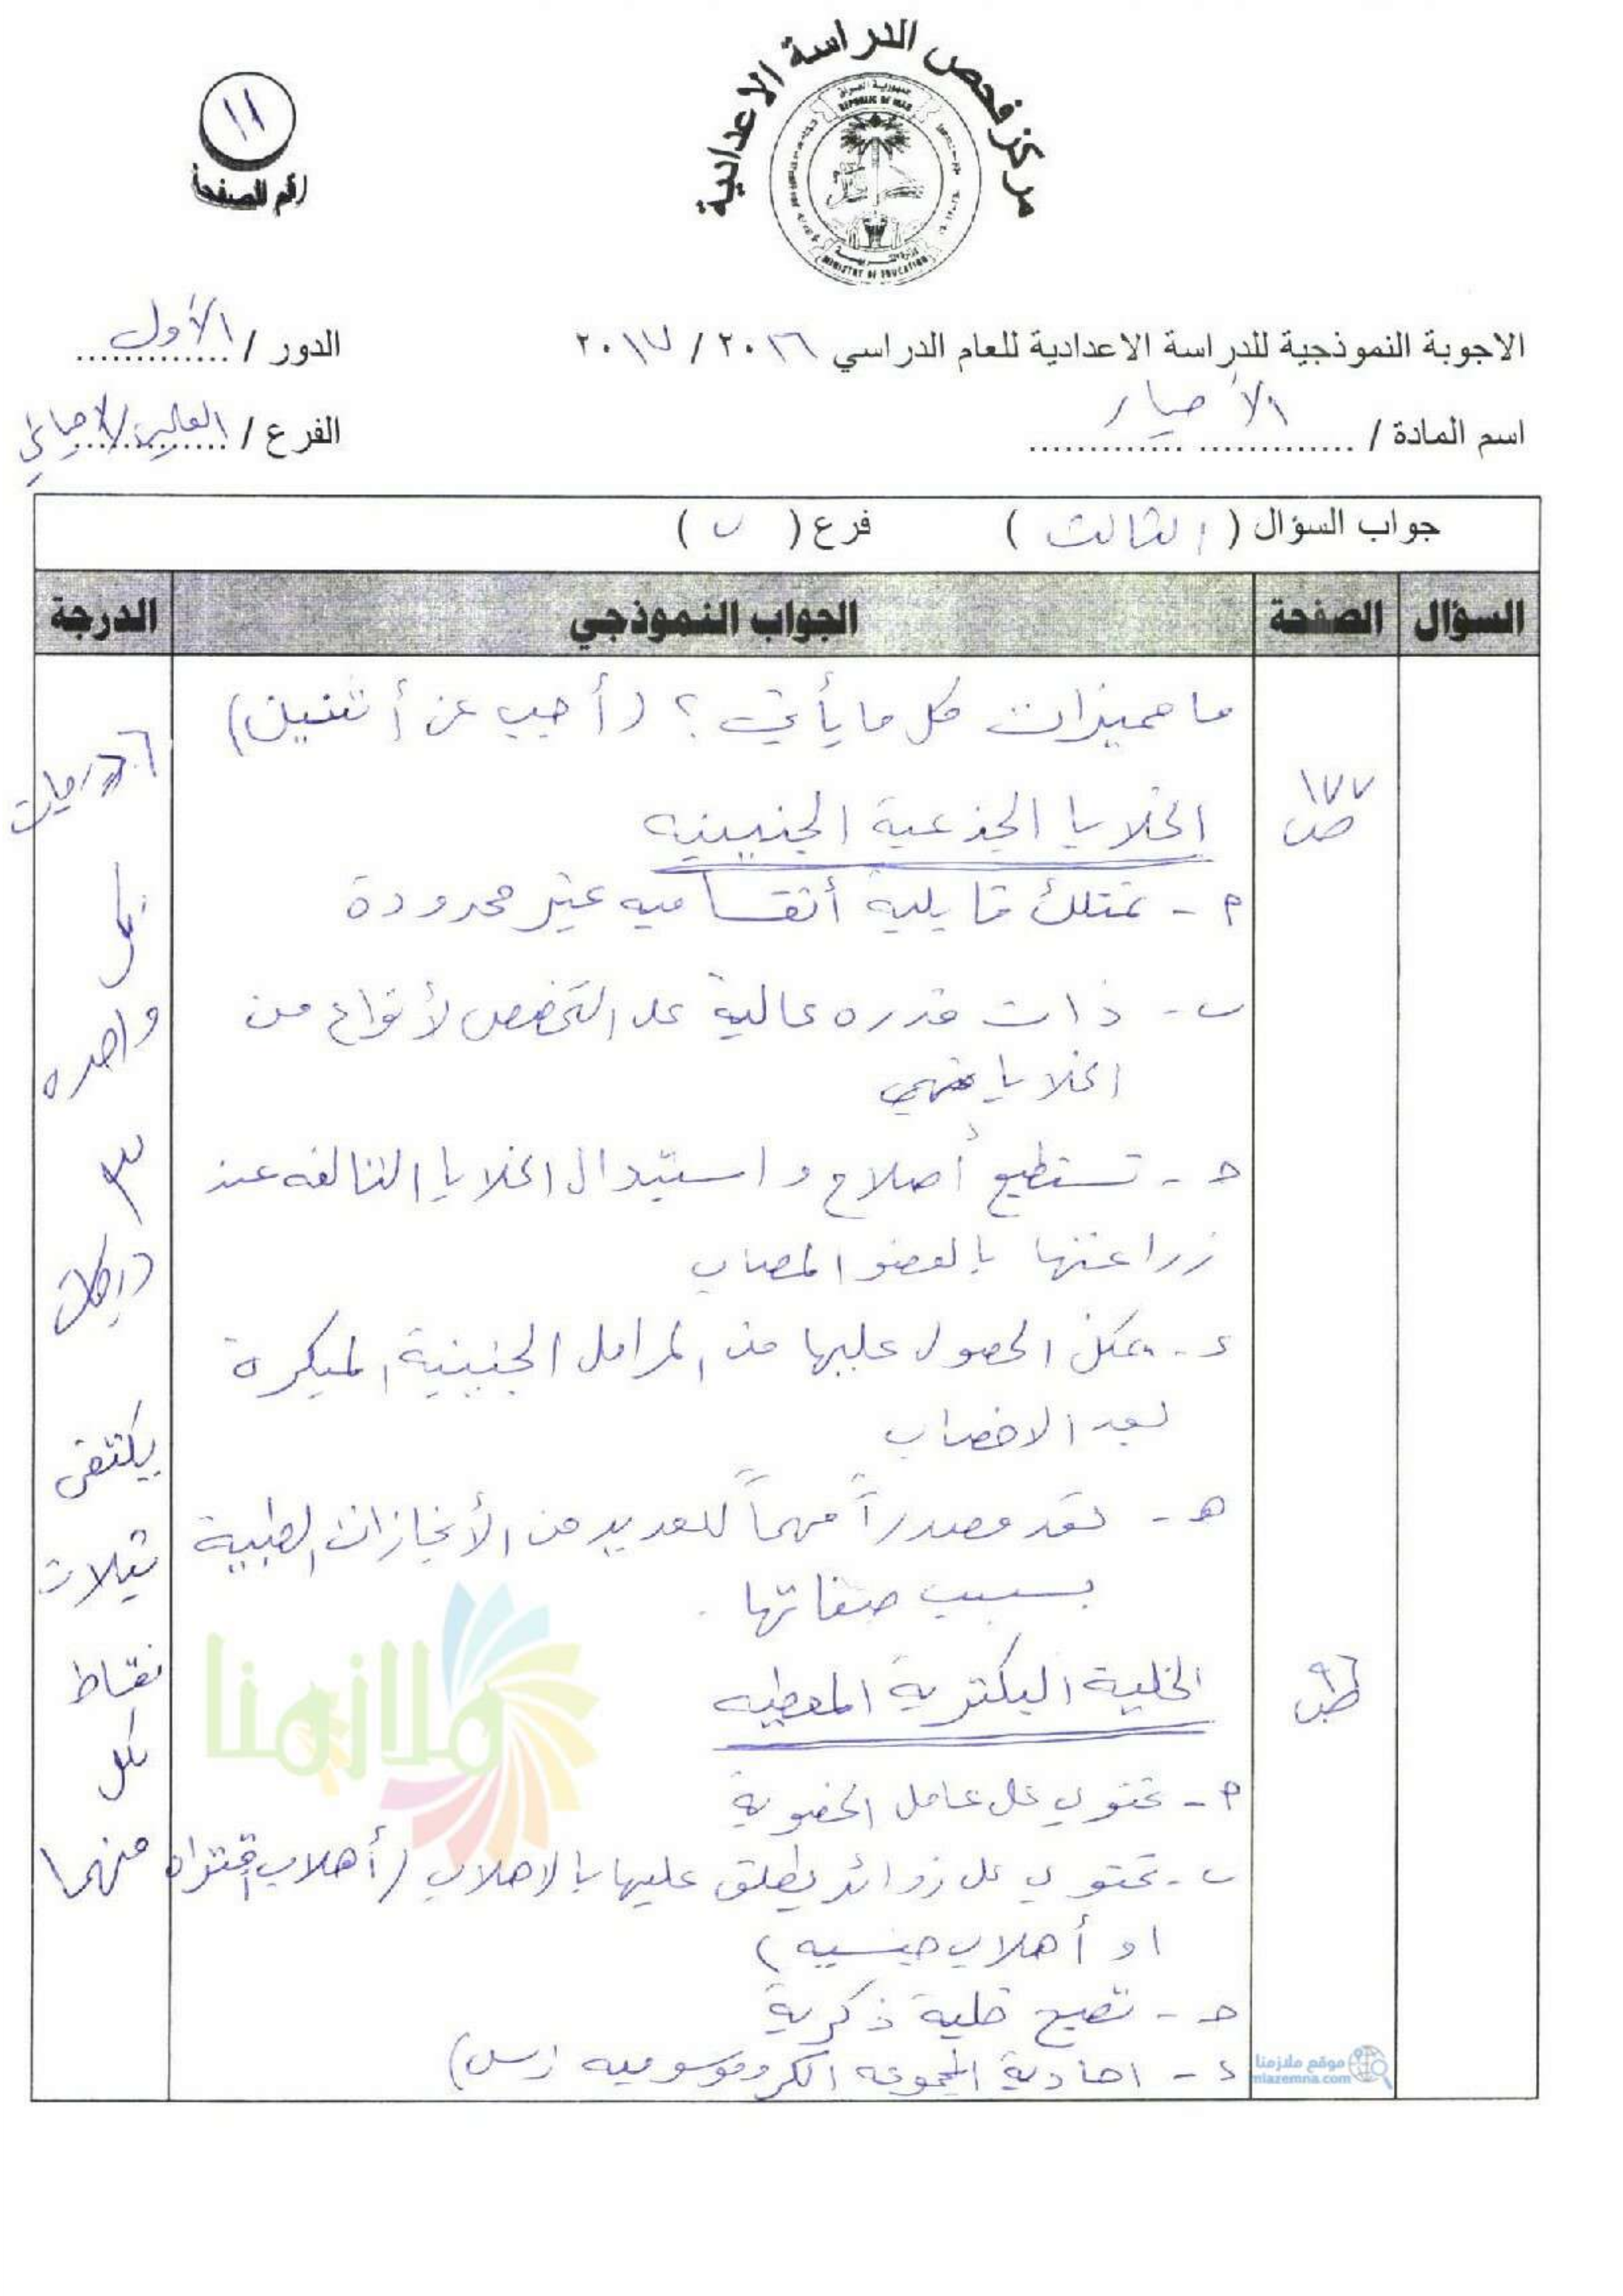 مركز فحص الدراسة الاعدادية
جمهورية العراق
REPUBLIC OF IRAQ
MINISTRY OF EDUCATION
١١
رقم الصفحة
الاجوبة النموذجية للدراسة الاعدادية للعام الدراسي ٢٠١٦ / ٢٠١٧
الدور / الأول
اسم المادة / الأحياء
الفرع / العلمي الاحيائي
جواب السؤال ( الثالث ) فرع ( ب )
السؤال الصفحة الجواب النموذجي الدرجة
ما مميزات كل ما يأتي ؟ (أجب عن أثنين)
٦ درجات
ص ١٧٧
الخلايا الجذعية الجنينيه
م - تمتلك قابلية أنقساميه غير محدودة
ب - ذات قدره عالية على التخصص لأنواع من
الخلايا
حـ - تستطيع أصلاح و استبدال الخلايا التالفه عند
زراعتها بالعضو المصاب
د - يمكن الحصول عليها من المراحل الجنينية المبكرة
بعد الاخصاب
هـ - تعد مصدراً مهماً للعديد من الأنجازات الطبية
بسبب صفاتها .
لكل
واحده
٣
درجات
يكتفى
بثلاث
نقاط
لكل
منهما
ص ٩٦
الخلية البكترية المعطيه
م - تحتوي على عامل الخصوبة
ب - تحتوي على زوائد يطلق عليها بالاهلاب (أهلاب أقتران
او أهلاب جنسيه)
حـ - تصبح خلية ذكرية
د - احادية المجموعه الكروموسوميه (س)
ملازمنا
موقع ملازمنا
mlazemna.com